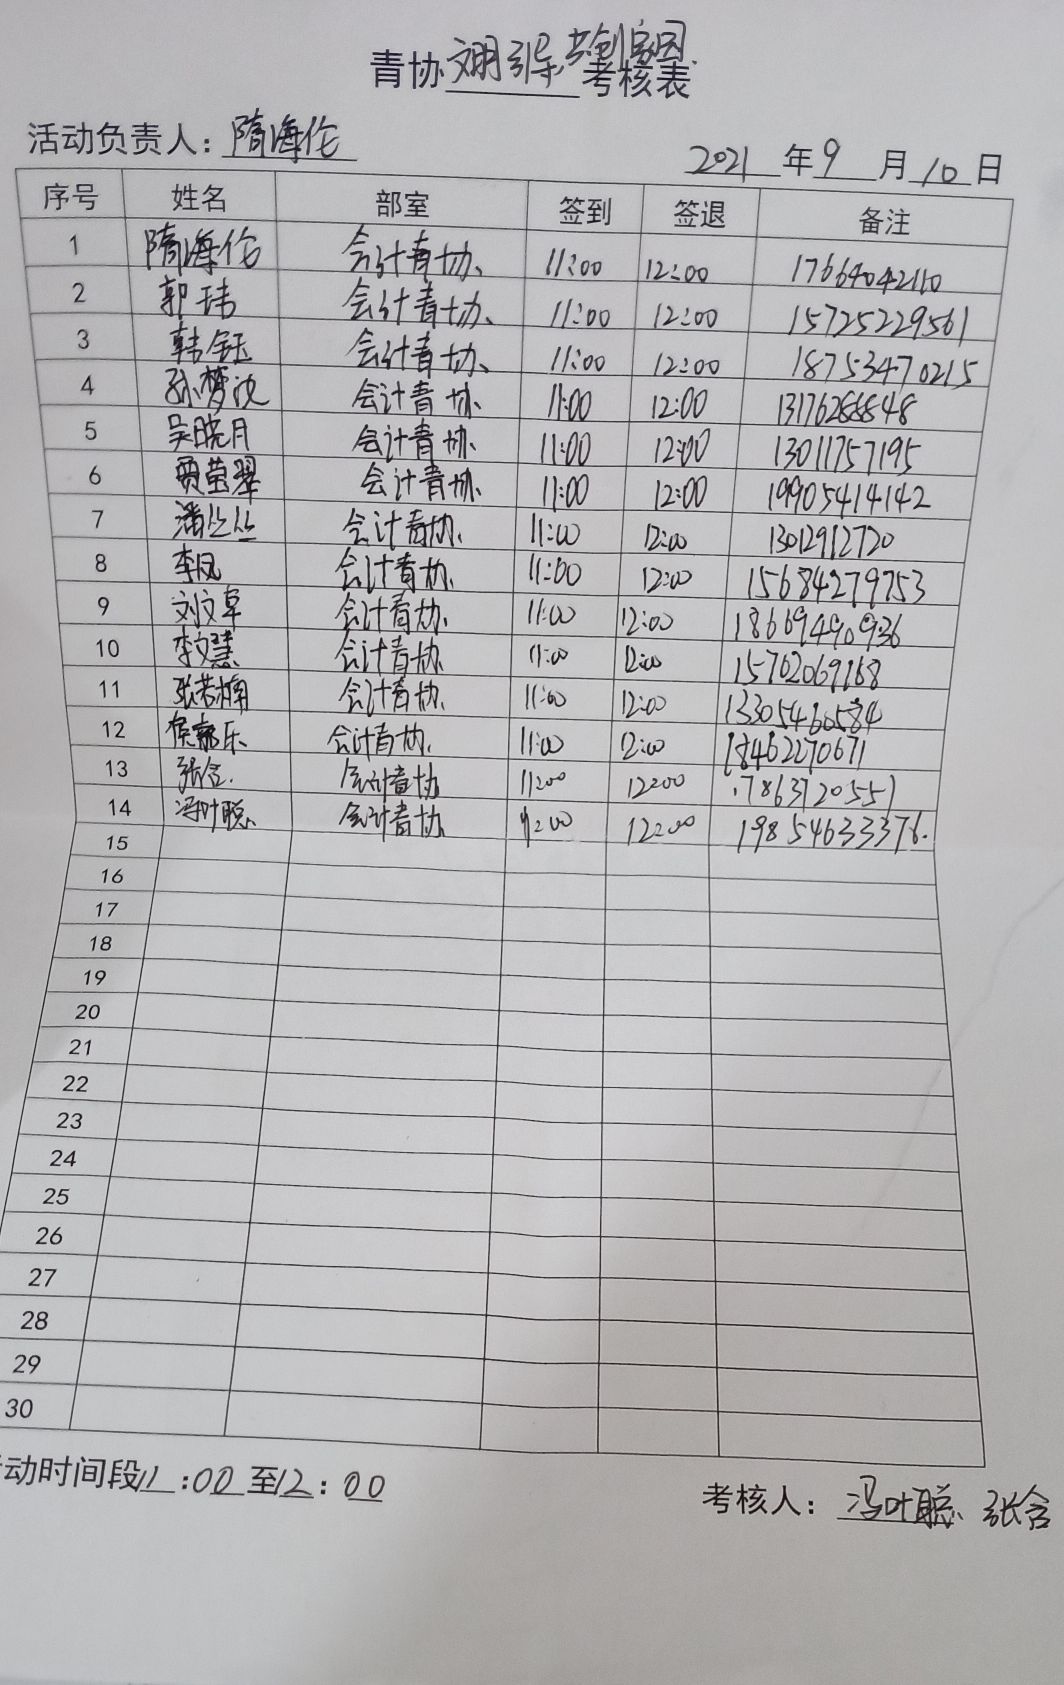 青协文明引导,共创家园考核表
活动负责人：隋海伦
2021年9月10日
序号 姓名 部室 签到 签退 备注
1 隋海伦 会计青协 11:00 12:00 17664042110
2 郭玮 会计青协 11:00 12:00 15725229561
3 韩钰 会计青协 11:00 12:00 18753470215
4 孙梦沈 会计青协 11:00 12:00 13176288848
5 吴晓月 会计青协 11:00 12:00 13011757195
6 贾萤翠 会计青协 11:00 12:00 19905414142
7 潘丛丛 会计青协 11:00 12:00 13012912720
8 李凤 会计青协 11:00 12:00 15684279753
9 刘文卓 会计青协 11:00 12:00 18669490936
10 李文慧 会计青协 11:00 12:00 15762069168
11 张若楠 会计青协 11:00 12:00 13305460584
12 会计青协 11:00 12:00 18462270671
13 张含 会计青协 11:00 12:00 17863720551
14 冯叶聪 会计青协 11:00 12:00 19854633376
15
16
17
18
19
20
21
22
23
24
25
26
27
28
29
30
动时间段11:00至12:00
考核人：冯叶聪、张含